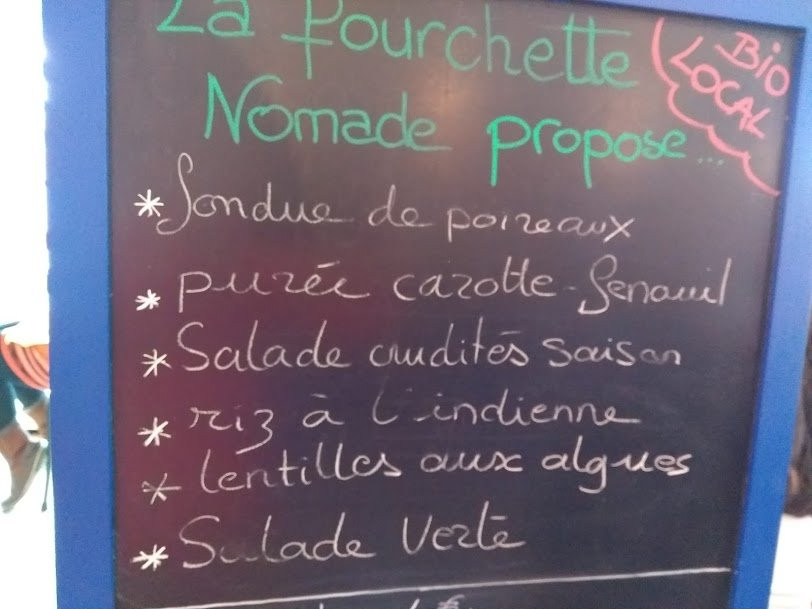 La fourchette
Nomade propose...
BiO
LOCAL
* fondue de poireaux
* purée carotte - fenouil
* Salade crudités saison
* riz à l'indienne
* lentilles aux algues
* Salade Verte